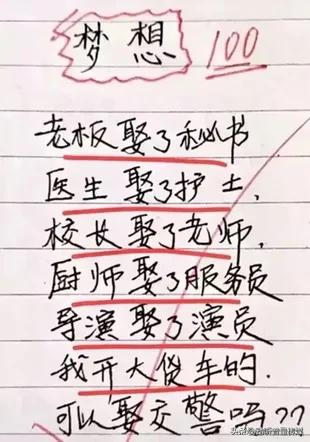 梦想
100
老板娶了秘书
医生娶了护士,
校长娶了老师,
厨师娶了服务员
导演娶了演员
我开大货车的.
可以娶交警吗??